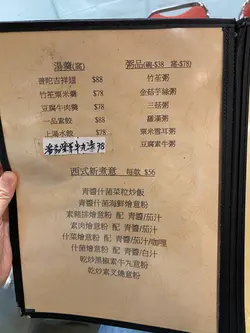 湯羹(窩)
普陀吉祥翅 $88
竹笙粟米羹 $78
豆腐牛肉羹 $78
一品素餃 $78
上湯水餃 $78
粥品(碗-$38 窩-$78)
竹笙粥
金菇芋絲粥
三菇粥
羅漢粥
粟米雪耳粥
豆腐素牛粥
西式新煮意 每款 $56
青醬什菌菜粒炒飯
青醬什菌海鮮燴意粉
素豬排燴意粉 配 青醬/茄汁
素肉燴意粉 配 青醬/茄汁
什菜燴意粉 配 青醬/茄汁/咖喱
什菌燴意粉 配 青醬/白汁
乾炒黑椒素牛丸意粉
乾炒素叉燴意粉